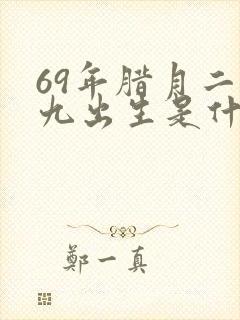 69年腊月二
九出生是什
鄭一真